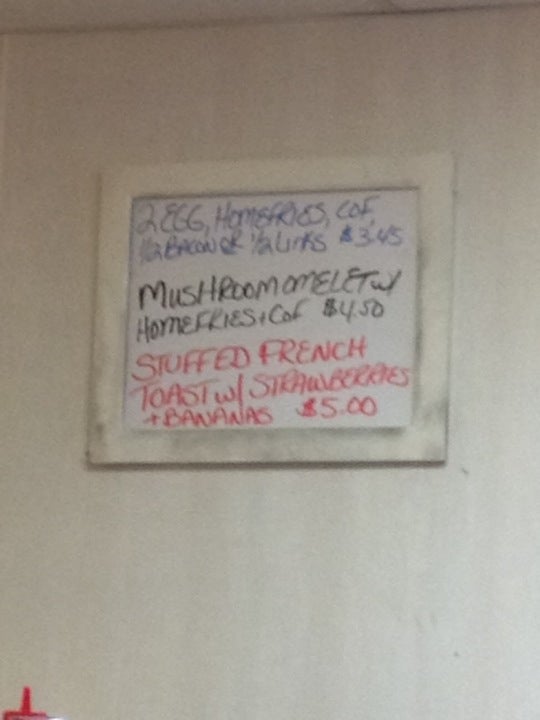 2 EGG, HOMEFRIES, COF,
1/2 BACON OR 1/2 LINKS $3.45
MUSHROOM OMELET W/
HOMEFRIES + COF $4.50
STUFFED FRENCH
TOAST W/ STRAWBERRIES
+ BANANAS $5.00